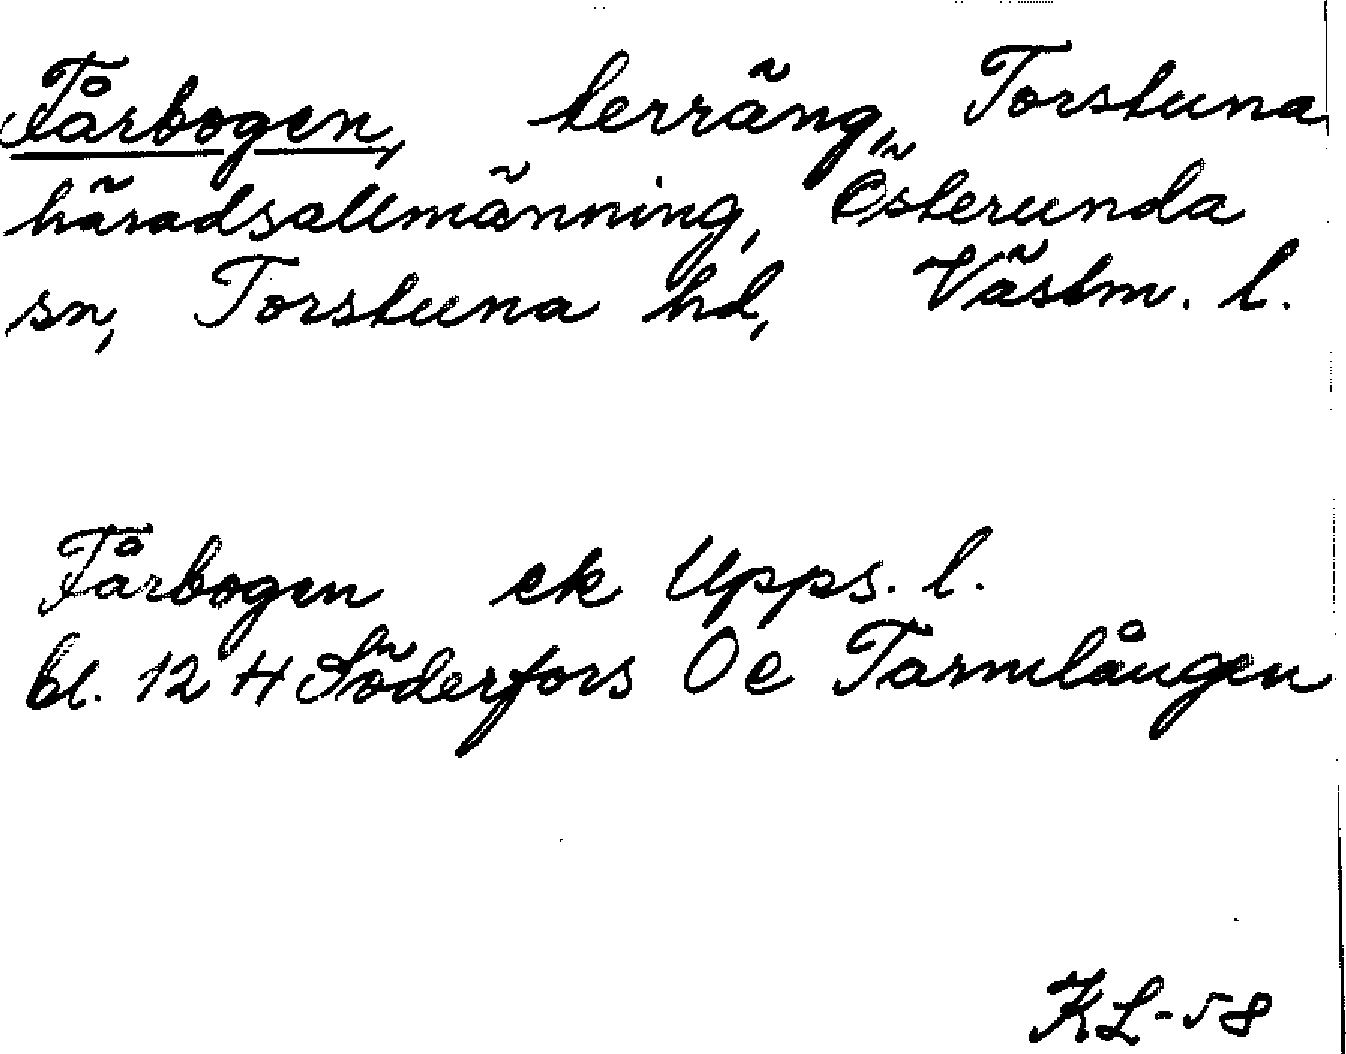 Fårbogen, terräng, Torstuna
häradsallmänning, Österunda
sn, Torstuna hd, Västm. l.
Fårbogen ek Upps. l.
bl. 12 H Söderfors 0 e Tarmlången
KL-58